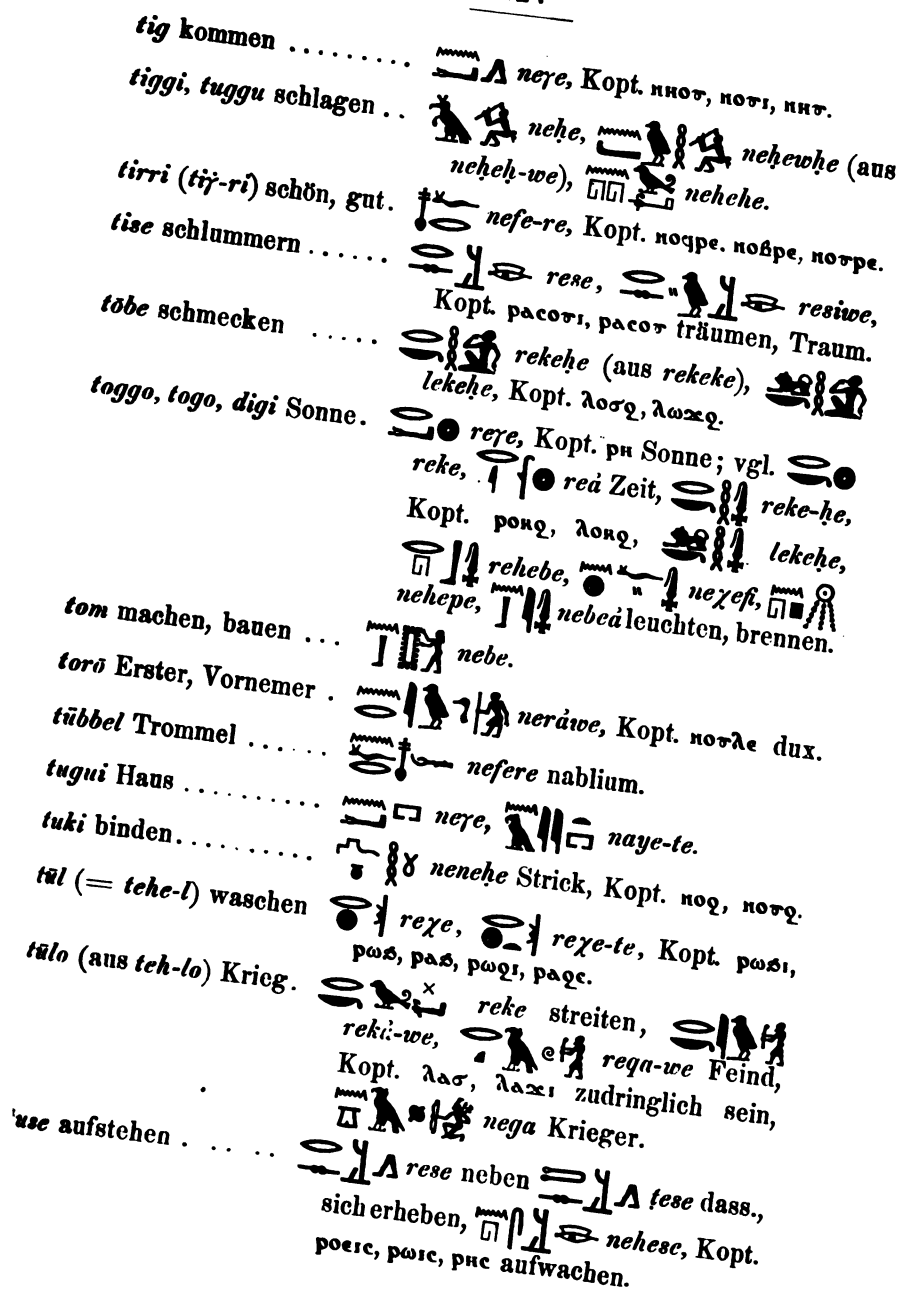 tig kommen . . . . . . . . . neγe, Kopt. ⲛⲏⲟⲩ, ⲛⲟⲩⲓ, ⲛⲏⲩ.
tiggi, tuggu schlagen . . neḥe, neḥewḥe (aus
neḥeḥ-we), nehehe.
tirri (tiγ̇-ri) schön, gut. nefe-re, Kopt. ⲛⲟϥⲣⲉ, ⲛⲟⲃⲣⲉ, ⲛⲟⲩⲣⲉ.
tise schlummern . . . . . . rese, resiwe,
Kopt. ⲣⲁⲥⲟⲩⲓ, ⲣⲁⲥⲟⲩ träumen, Traum.
tōbe schmecken . . . . . rekeḥe (aus rekeke),
lekeḥe, Kopt. ⲗⲟϭϩ, ⲗⲱϫϩ.
toggo, togo, digi Sonne. reγe, Kopt. ⲣⲏ Sonne; vgl.
reke, reȧ Zeit, reke-ḥe,
Kopt. ⲣⲟⲕϩ, ⲗⲟⲕϩ, lekeḥe,
rehebe, neχefi,
nehepe, nebeȧ leuchten, brennen.
tom machen, bauen . . . nebe.
torō Erster, Vornemer . nerȧwe, Kopt. ⲛⲟⲩⲗⲉ dux.
tūbbel Trommel . . . . . . nefere nablium.
tugui Haus . . . . . . . . . . neγe, naye-te.
tuki binden . . . . . . . . . . neneḥe Strick, Kopt. ⲛⲟϩ, ⲛⲟⲩϩ.
tūl (= tehe-l) waschen reχe, reχe-te, Kopt. ⲣⲱϧⲓ,
ⲣⲱϧ, ⲣⲁϧ, ⲣⲱϩⲓ, ⲣⲁϩⲉ.
tūlo (aus teh-lo) Krieg. reke streiten,
-we, reqa-we Feind,
Kopt. ⲗⲁϭ, ⲗⲁϫⲓ zudringlich sein,
nega Krieger.
use aufstehen . . . . . rese neben ṭese dass.,
sich erheben, nehese, Kopt.
ⲣⲟⲉⲓⲥ, ⲣⲱⲓⲥ, ⲣⲏⲥ aufwachen.